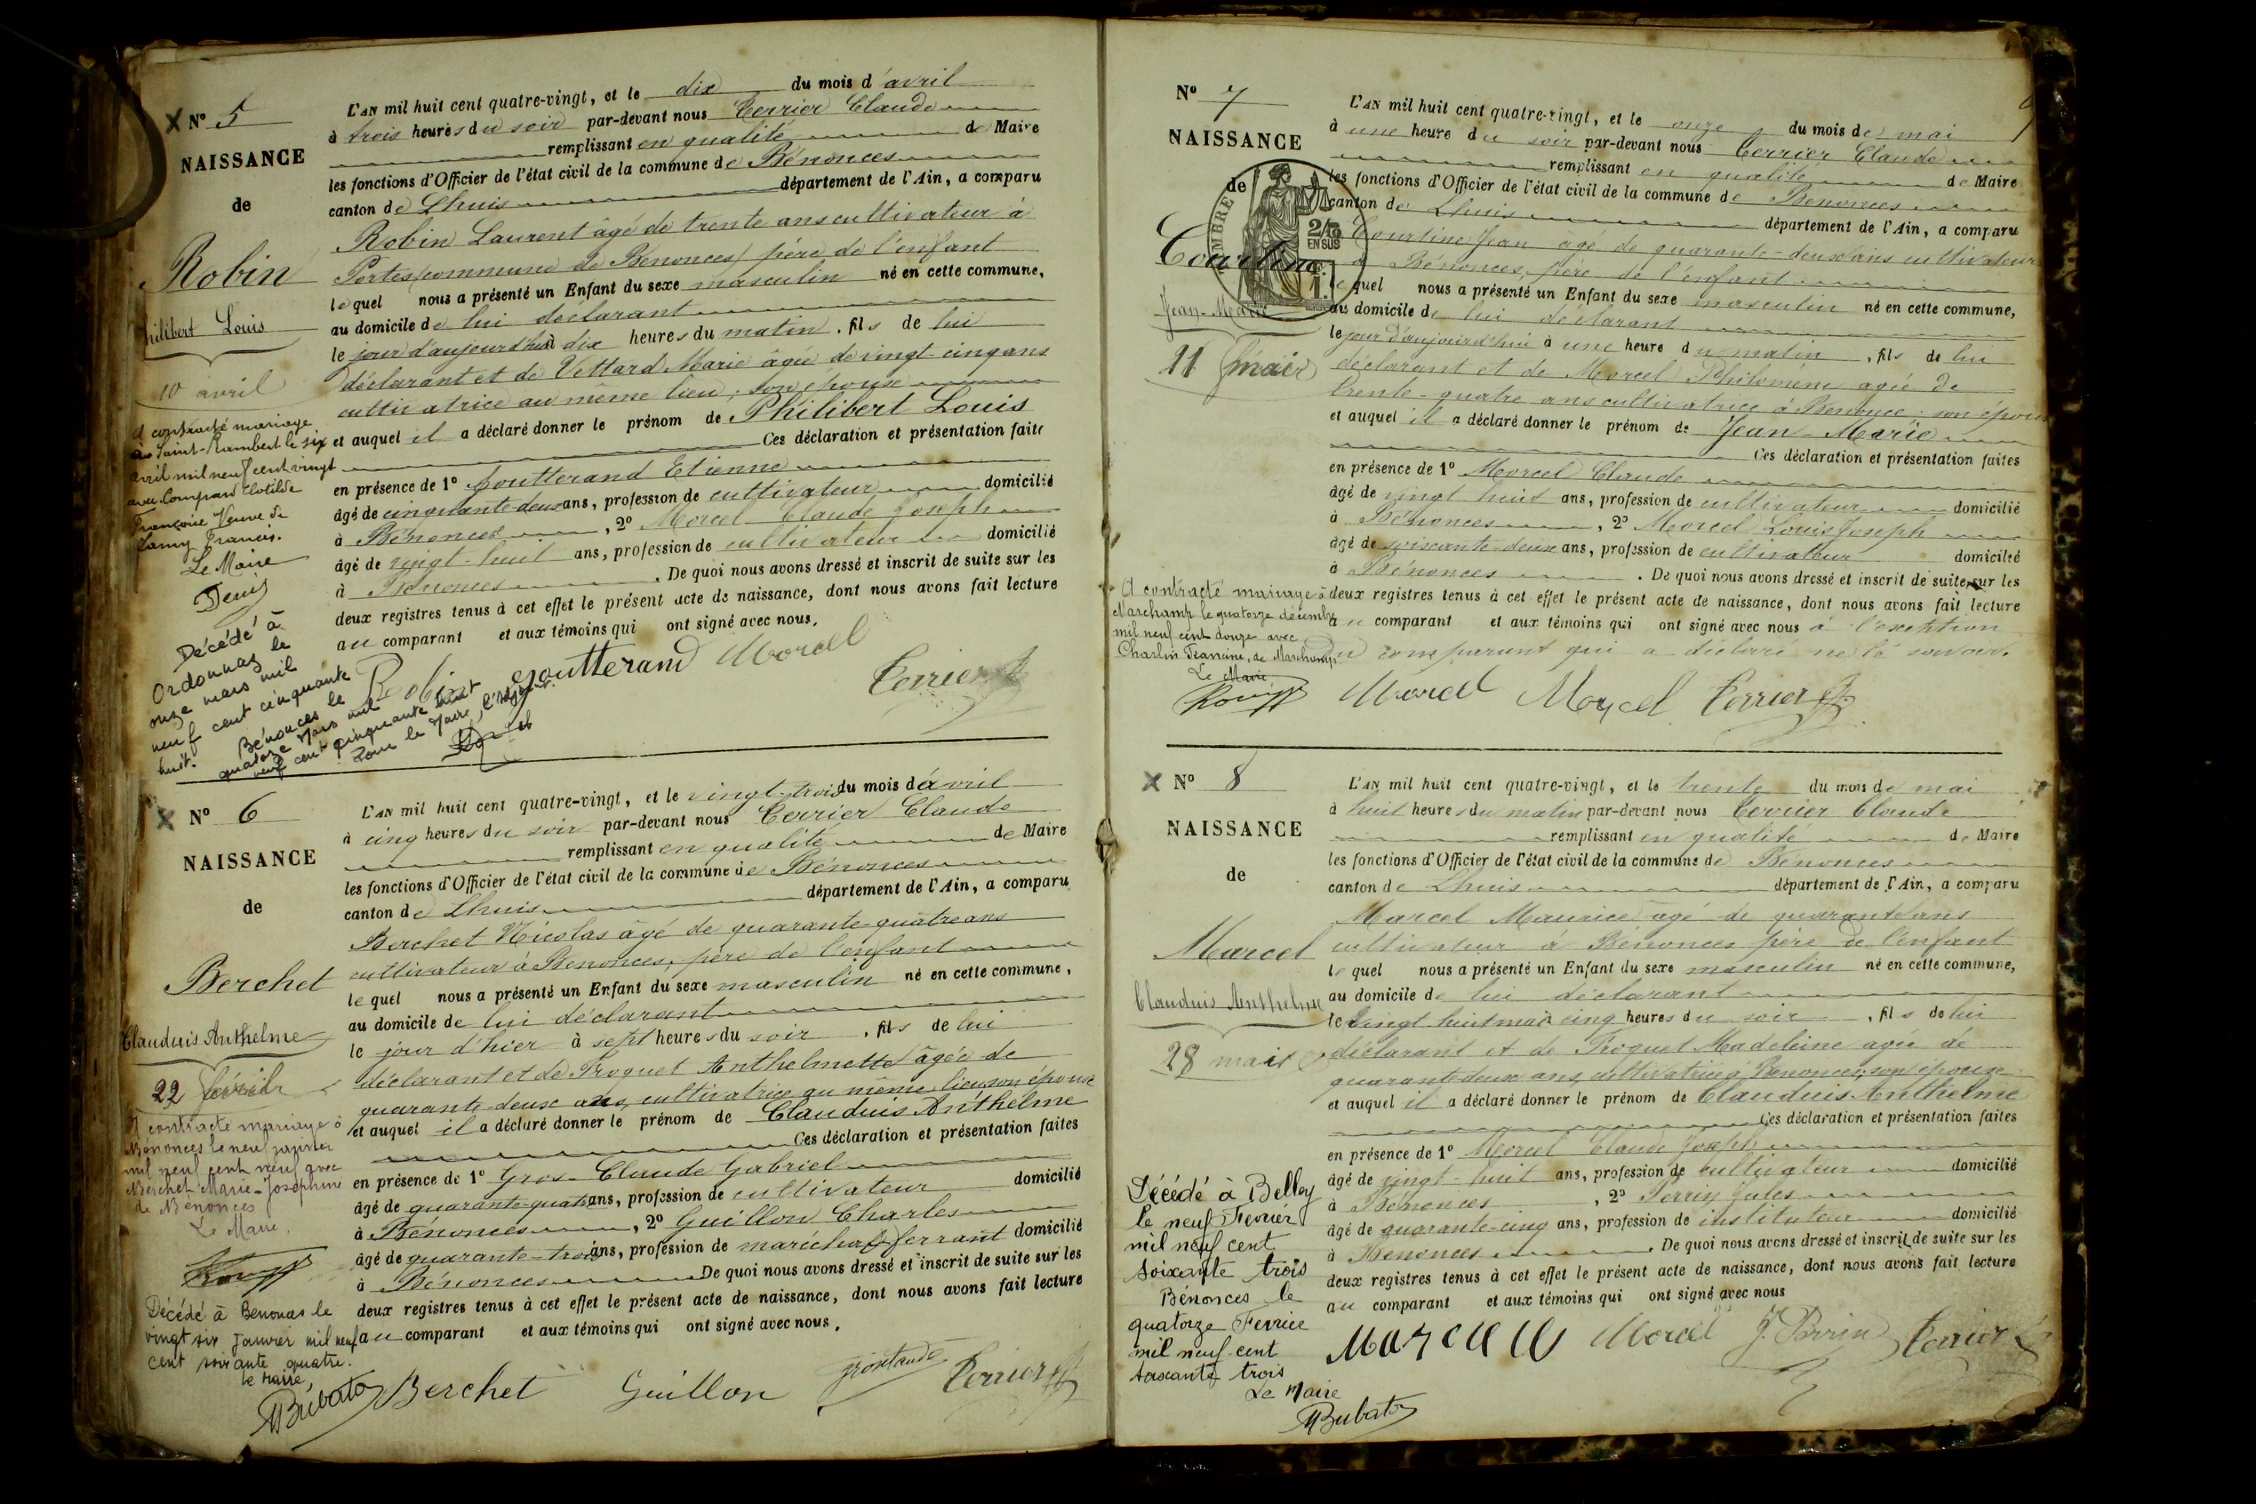 N° 5
NAISSANCE
de
Robin
Philibert Louis
10 avril
a contracté mariage
à Saint-Rambert le six
avril mil neuf cent vingt
avec Compard Clotilde
Françoise Veuve de
Lamy Francis.
Le Maire
Décédé à
Ordonnaz le
onze mars mil
neuf cent cinquante
huit.
Bénonces le
quatorze mars mil
neuf cent cinquante huit
Pour le Maire, l'adjoint.
L'AN mil huit cent quatre-vingt, et le dix du mois d'avril
à trois heures du soir par-devant nous Terrier Claude
remplissant en qualité de Maire
les fonctions d'Officier de l'état civil de la commune de Bénonces
canton de Lhuis département de l'Ain, a comparu
Robin Laurent âgé de trente ans cultivateur à
Portes (commune de Bénonces) père de l'enfant
lequel nous a présenté un Enfant du sexe masculin né en cette commune,
au domicile de lui déclarant
le jour d'aujourd'hui à dix heures du matin, fils de lui
déclarant et de Vettard Marie âgée de vingt cinq ans
cultivatrice au même lieu, son épouse
et auquel il a déclaré donner le prénom de Philibert Louis
Ces déclaration et présentation faites
en présence de 1° Goutterand Etienne
âgé de cinquante-deux ans, profession de cultivateur domicilié
à Bénonces, 2° Morcel Claude Joseph
âgé de vingt-huit ans, profession de cultivateur domicilié
à Bénonces. De quoi nous avons dressé et inscrit de suite sur les
deux registres tenus à cet effet le présent acte de naissance, dont nous avons fait lecture
au comparant et aux témoins qui ont signé avec nous.
Robin goutterand Morcel
Terrier
N° 6
NAISSANCE
de
Berchet
Clauduis Anthelme
22 avril
A contracté mariage à
Bénonces le neuf janvier
mil neuf cent neuf avec
Berchet Marie-Joséphine
de Bénonces
Le Maire.
Décédé à Benonces le
vingt six Janvier mil neuf
cent soixante quatre.
le maire,
MBubaton
L'AN mil huit cent quatre-vingt, et le vingt-trois du mois d'avril
à cinq heures du soir par-devant nous Terrier Claude
remplissant en qualité de Maire
les fonctions d'Officier de l'état civil de la commune de Bénonces
canton de Lhuis département de l'Ain, a comparu
Berchet Nicolas âgé de quarante quatre ans
cultivateur à Bénonces, père de l'enfant
lequel nous a présenté un Enfant du sexe masculin né en cette commune,
au domicile de lui déclarant
le jour d'hier à sept heures du soir, fils de lui
déclarant et de Troquet Anthelmette âgée de
quarante deux ans, cultivatrice au même lieu son épouse
et auquel il a déclaré donner le prénom de Clauduis Anthelme
Ces déclaration et présentation faites
en présence de 1° Gros Claude Gabriel
âgé de quarante-quatre ans, profession de cultivateur domicilié
à Bénonces, 2° Guillon Charles
âgé de quarante-trois ans, profession de maréchal ferrant domicilié
à Bénonces De quoi nous avons dressé et inscrit de suite sur les
deux registres tenus à cet effet le présent acte de naissance, dont nous avons fait lecture
au comparant et aux témoins qui ont signé avec nous.
Berchet Guillon Terrier
9
N° 7
NAISSANCE
de
TIMBRE
2/10
EN SUS
1F.
Courtine
Jean-Marie
11 mai
A contracté mariage à
Marchamp le quatorze décembre
mil neuf cent douze avec
Charlin Francine, de Marchamp
Le Maire
L'AN mil huit cent quatre-vingt, et le onze du mois de mai
à une heure du soir par-devant nous Terrier Claude
remplissant en qualité de Maire
les fonctions d'Officier de l'état civil de la commune de Bénonces
canton de Lhuis département de l'Ain, a comparu
Courtine Jean âgé de quarante-deux ans cultivateur
à Bénonces, père de l'enfant
lequel nous a présenté un Enfant du sexe masculin né en cette commune,
au domicile de lui déclarant
le jour d'aujourd'hui à une heure du matin, fils de lui
déclarant et de Morcel Philomène agée de
trente-quatre ans cultivatrice à Bénonce son épouse
et auquel il a déclaré donner le prénom de Jean-Marie
Ces déclaration et présentation faites
en présence de 1° Morcel Claude
âgé de vingt huit ans, profession de cultivateur domicilié
à Bénonces, 2° Morcel Louis Joseph
âgé de soixante-deux ans, profession de cultivateur domicilié
à Bénonces. De quoi nous avons dressé et inscrit de suite sur les
deux registres tenus à cet effet le présent acte de naissance, dont nous avons fait lecture
au comparant et aux témoins qui ont signé avec nous à l'exception
du comparant qui a déclaré ne le savoir.
Morcel Morcel Terrier
N° 8
NAISSANCE
de
Marcel
Clauduis Anthelme
28 mai
Décédé à Belley
le neuf Fevrier
mil neuf cent
soixante trois
Bénonces le
quatorze Fevrier
mil neuf cent
soixante trois
Le Maire
MBubaton
L'AN mil huit cent quatre-vingt, et le trente du mois de mai
à huit heures du matin par-devant nous Terrier Claude
remplissant en qualité de Maire
les fonctions d'Officier de l'état civil de la commune de Bénonces
canton de Lhuis département de l'Ain, a comparu
Marcel Maurice âgé de quarante ans
cultivateur à Bénonces père de l'enfant
lequel nous a présenté un Enfant du sexe masculin né en cette commune,
au domicile de lui déclarant
le vingt huit mai à cinq heures du soir, fils de lui
déclarant et de Troquet Madeleine agée de
quarante-deux ans, cultivatrice à Bénonces, son épouse
et auquel il a déclaré donner le prénom de Clauduis Anthelme
Ces déclaration et présentation faites
en présence de 1° Morcel Claude Joseph
âgé de vingt-huit ans, profession de cultivateur domicilié
à Bénonces, 2° Perrin Jules
âgé de quarante-cinq ans, profession de instituteur domicilié
à Bénonces. De quoi nous avons dressé et inscrit de suite sur les
deux registres tenus à cet effet le présent acte de naissance, dont nous avons fait lecture
au comparant et aux témoins qui ont signé avec nous
Morcel J. Perrin Terrier